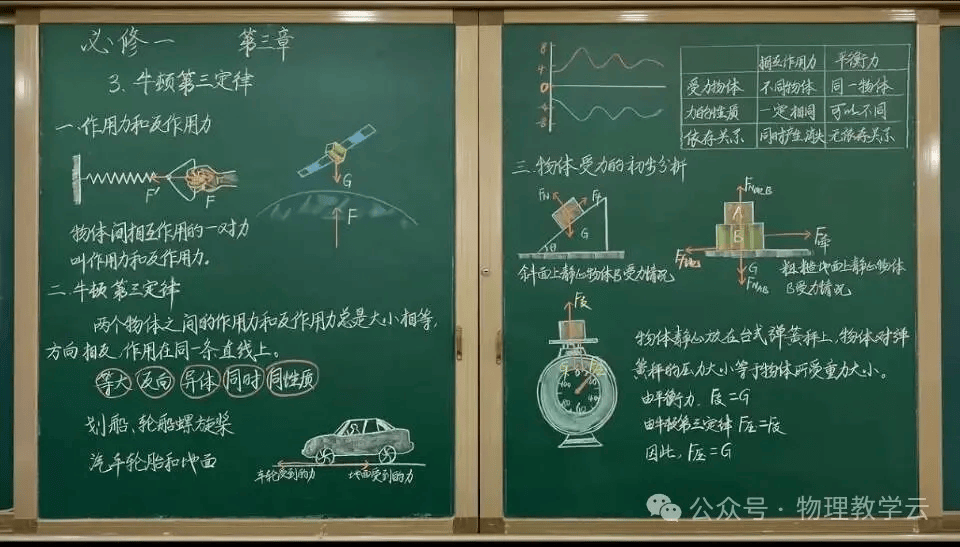 必修一 第三章
3.牛顿第三定律
一.作用力和反作用力
F′ F
G
F
物体间相互作用的一对力
叫作用力和反作用力。
二.牛顿第三定律
两个物体之间的作用力和反作用力总是大小相等,
方向相反,作用在同一条直线上。
等大 反向 异体 同时 同性质
划船、轮船螺旋桨
汽车轮胎和地面
车轮受到的力 地面受到的力
8
4
0
-4
-8
相互作用力 平衡力
受力物体 不同物体 同一物体
力的性质 一定相同 可以不同
依存关系 同时产生消失 无依存关系
三.物体受力的初步分析
FN
G
θ
斜面上静止物体B受力情况
A
B
G
FNAB
粗糙地面上静止物体
B受力情况
F支
物体静止放在台式弹簧秤上,物体对弹
簧秤的压力大小等于物体所受重力大小。
由平衡力,F支=G
由牛顿第三定律 F压=F支
因此,F压=G
公众号·物理教学云